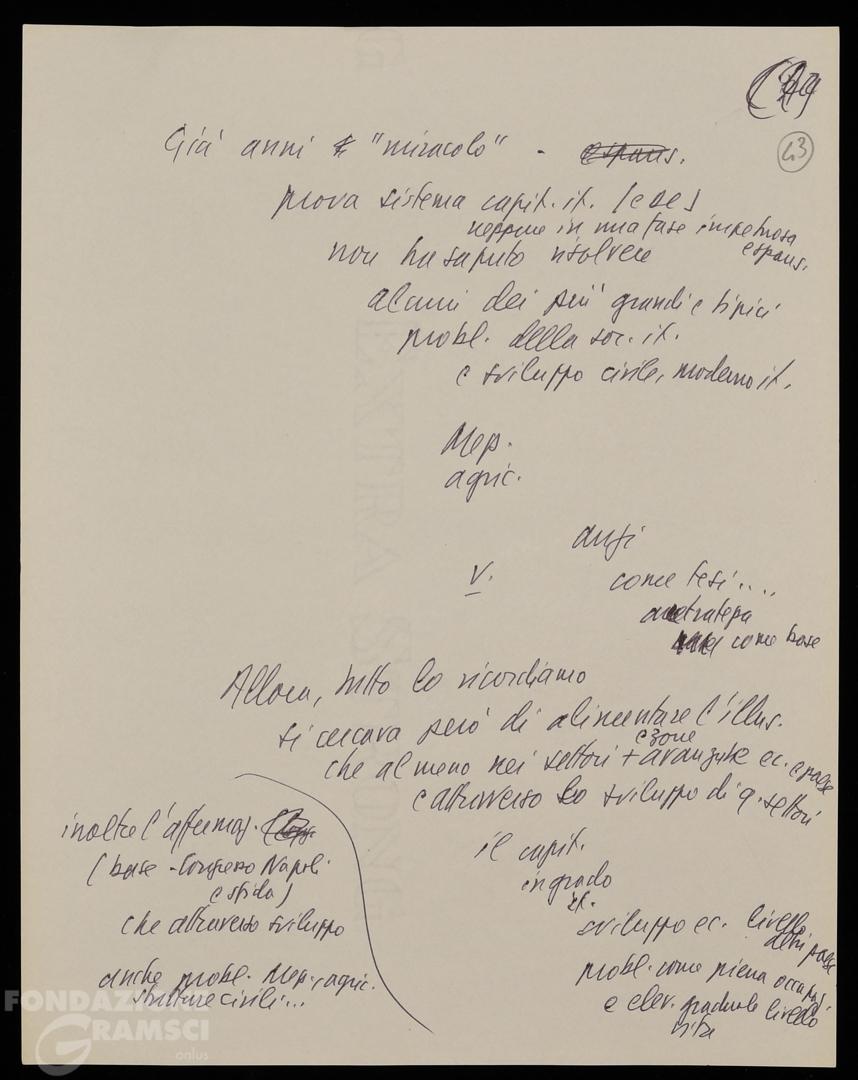 43
Già anni "miracolo" - espans.
prova sistema capit. it.
neppure in una fase impetuosa
espans.
non ha saputo risolvere
alcuni dei più grandi e tipici
probl. della soc. it.
e sviluppo civile, moderno it.
agric.
anzi
V.
come tesi....
come base
Allora, tutto lo ricordiamo
si cercava però di alimentare l'illus.
e zone
che almeno nei settori + avanzate ec. e paese
e attraverso lo sviluppo di q. settori
il capit.
in grado
it.
sviluppo ec. livello
altri paesi
probl. come piena occupaz.
e elev. graduale livello
vita
inoltre l'affermaz.
(base - Congresso Napoli
e sfida)
che attraverso sviluppo
anche probl. Mezz. agric.
strutture civili...
FONDAZIONE
GRAMSCI
onlus